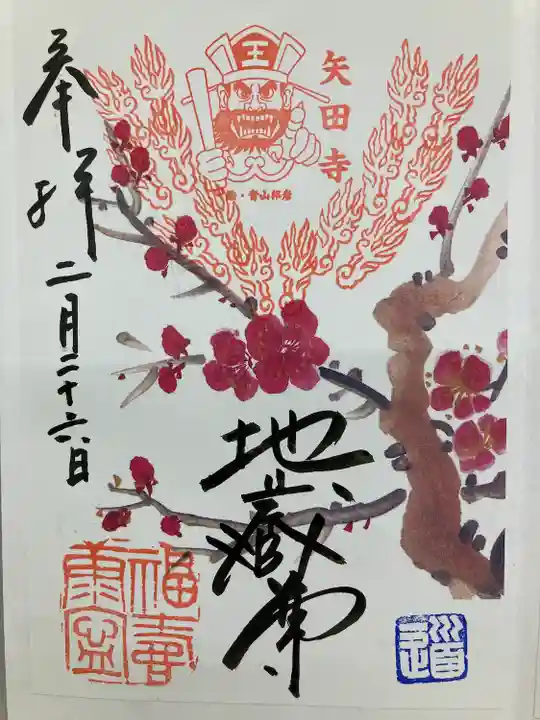 王
矢田寺
・青山邦彦
奉拝
二月二十六日
地蔵尊
福寿
康寧
道